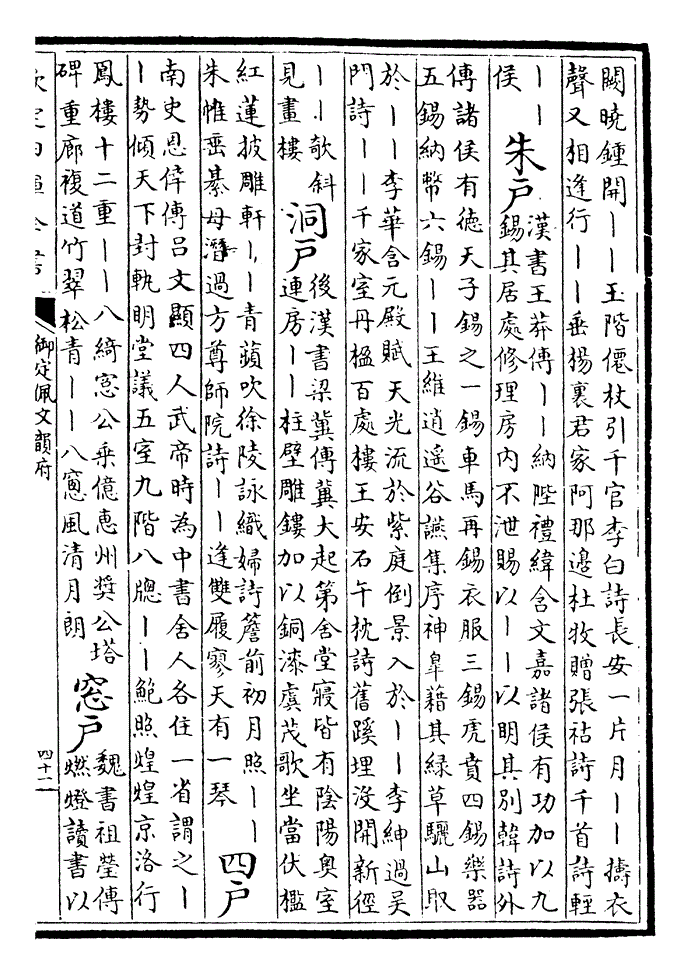 闕曉鍾開丨丨玉階僊杖引千官李白詩長安一片月丨丨擣衣
聲又相逢行丨丨垂揚裏君家阿那邊杜牧贈張祜詩千首詩輕
丨丨
侯
朱戶
漢書王莽傳丨丨納陛禮緯含文嘉諸侯有功加以九
錫其居處修理房內不泄賜以丨丨以明其別韓詩外
傳諸侯有徳天子錫之一錫車馬再錫衣服三錫虎賁四錫樂器
五錫納幣六錫丨丨王維逍遥谷讌集序神臯藉其緑草驪山取
於丨丨李華含元殿賦天光流於紫庭倒景入於丨丨李紳過吴
門詩丨丨千家室丹楹百處樓王安石午枕詩舊蹊埋没開新徑
丨丨歌斜
見畫樓
洞戶
後漢書梁冀傳冀大起第舍堂寢皆有陰陽奥室
連房丨丨柱壁雕鏤加以銅漆虞茂歌坐當伏檻
紅蓮披雕軒丨丨青蘋吹徐陵詠織婦詩簷前初月照丨丨
朱帷垂綦母潛過方尊師院詩丨丨逢雙履寥天有一琴
四戶
南史恩倖傳吕文顯四人武帝時為中書舍人各住一省謂之丨
丨勢傾天下封軌明堂議五室九階八牕丨丨鮑照煌煌京洛行
鳳樓十二重丨丨八綺窓公乘億惠州奬公塔
碑重廊複道竹翠松青丨丨八窻風清月朗
窓戶
魏書祖瑩傳
燃燈讀書以
欽定四庫全書
御定佩文韻府
四十一